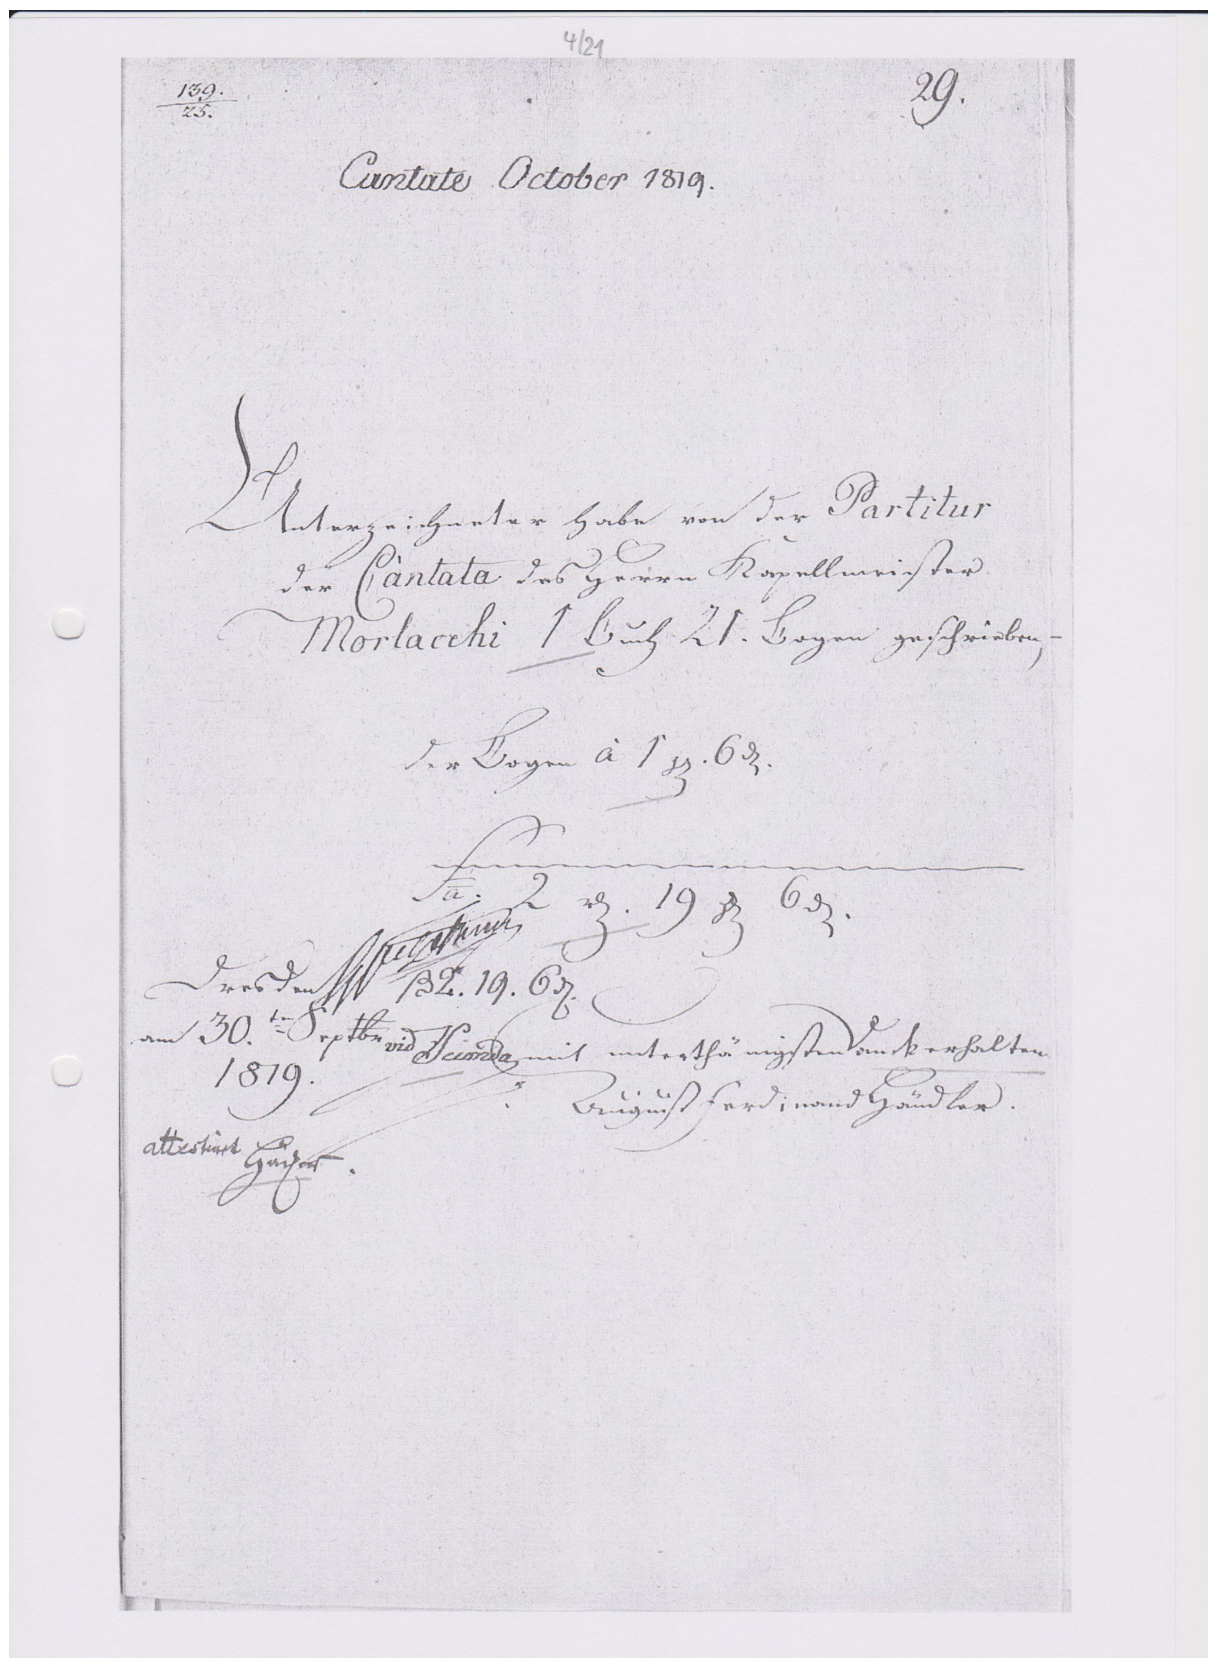 4/21
139.
25.
29.
Cantate October 1819.
Unterzeichneter habe von der Partitur
der Cantata des Herrn Kapellmeister
Morlacchi 1 Buch 21. Bogen geschrieben,
der Bogen à 1 gr. 6 d.
Sa. 2 rh. 19 gr 6 d.
Dresden
132. 19. 6 d.
am 30.ten Septbr
vid
mit unterthänigsten danck erhalten
1819.
August Ferdinand Händler.
attestirt